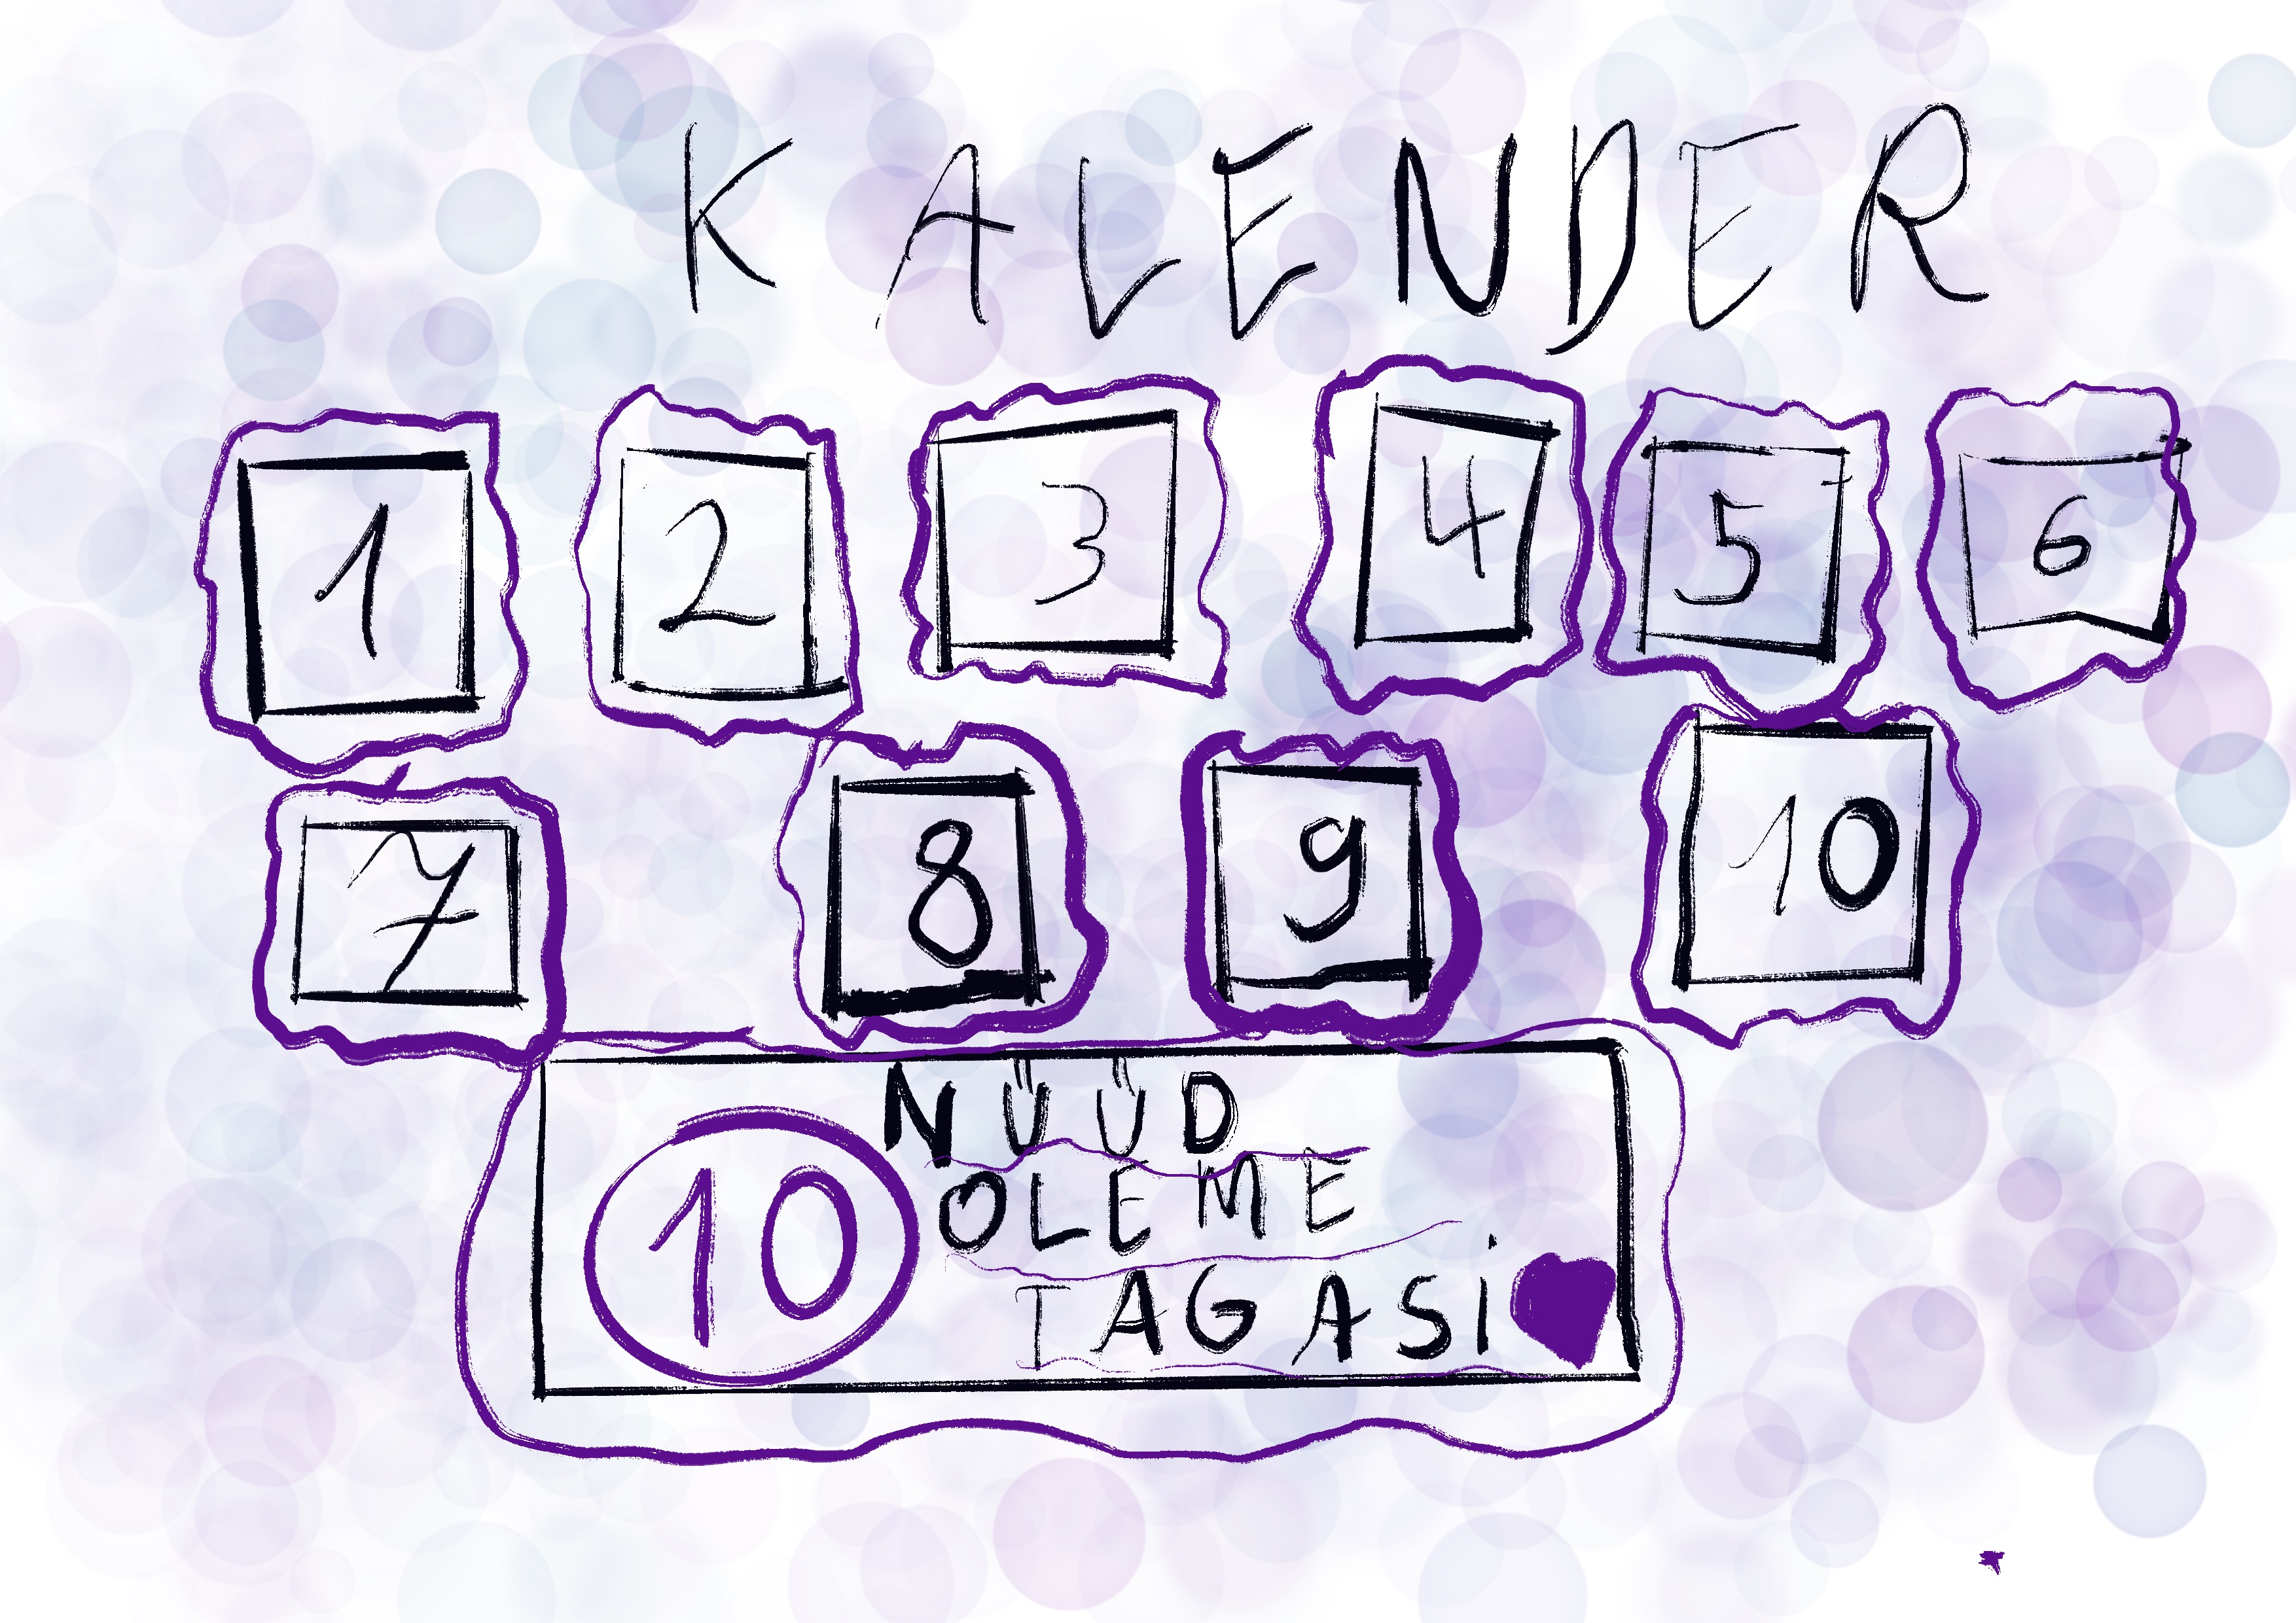 KALENDER
1 2 3 4 5 6
7 8 9 10
NÜÜD
10 OLEME
TAGASi